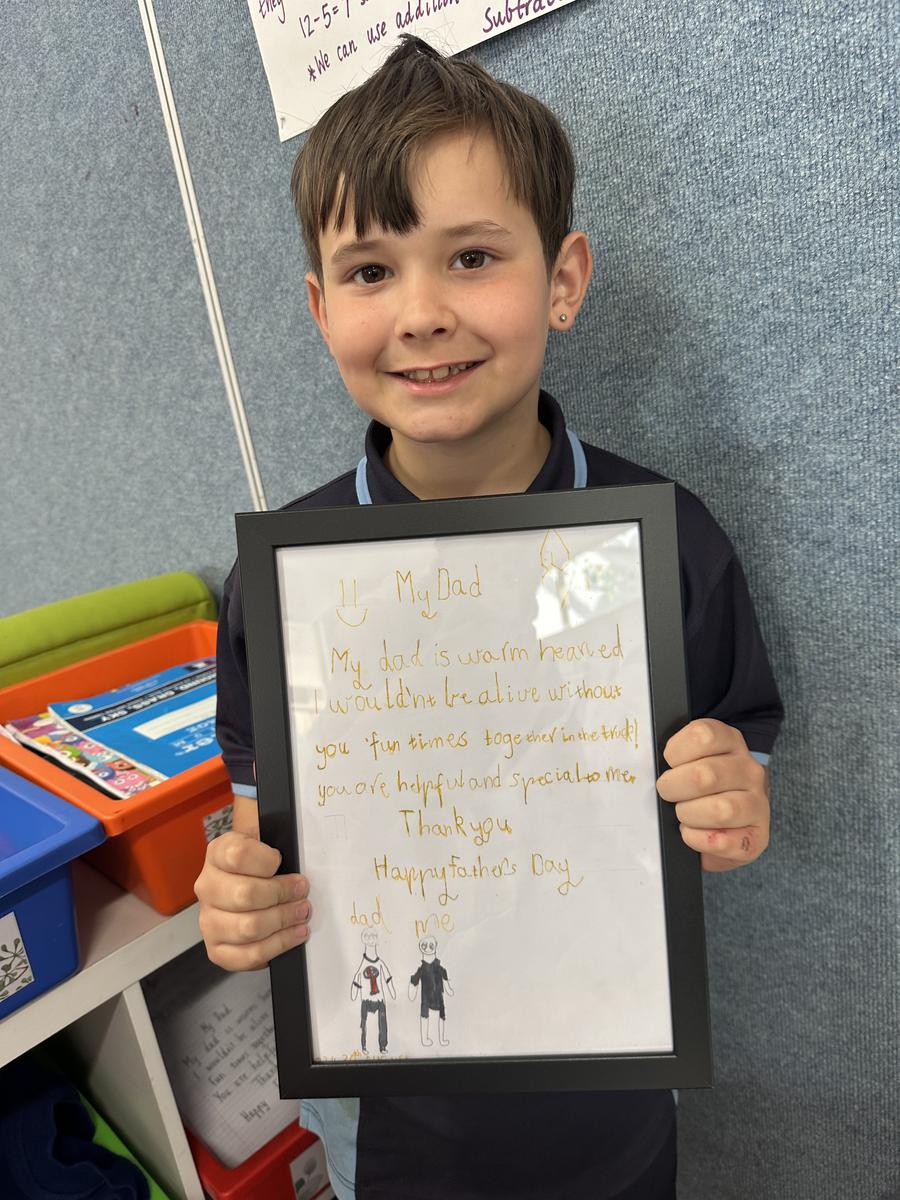 they
12-5=7
*We can use addition
Subtrac
My Dad
My dad is warm hearted
I wouldn't be alive without
you fun times together in the truck!
you are helpful and special to me.
Thank you
Happy fathers Day
dad me
My Dad
My dad is warm
wouldn't be alive
fun times
You are help
Than
Happy